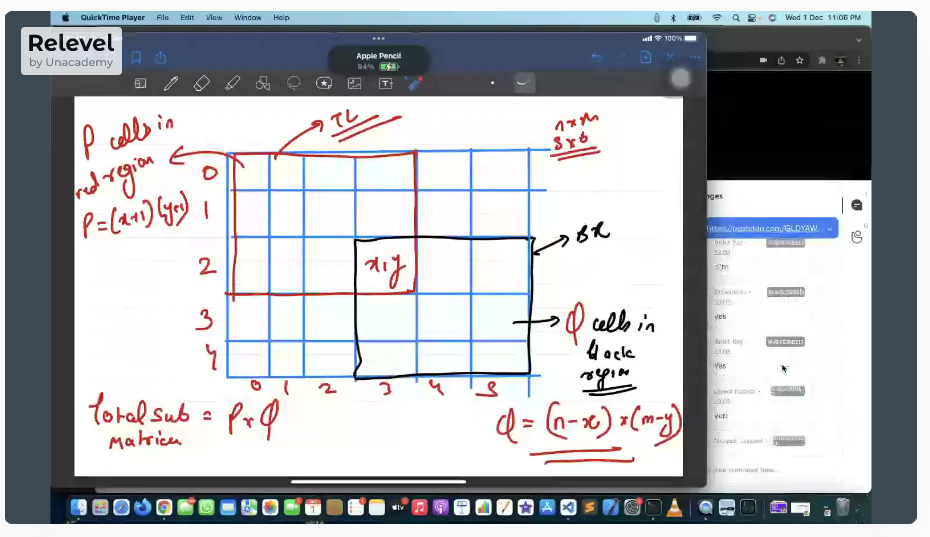 QuickTime Player File Edit View Window Help
Wed 1 Dec 11:06 PM
Relevel
by Unacademy
100%
Apple Pencil
94%
P cells in
red region
P = (x+1) (y+1)
TL
n x m
5 x 6
0
1
2
3
4
x, y
BR
Q cells in
black
region
0 1 2 3 4 5
Total sub = P x Q
matrices
Q = (n-x) * (m-y)
https://pastebin.com/GLDYAW...
yes
Yes